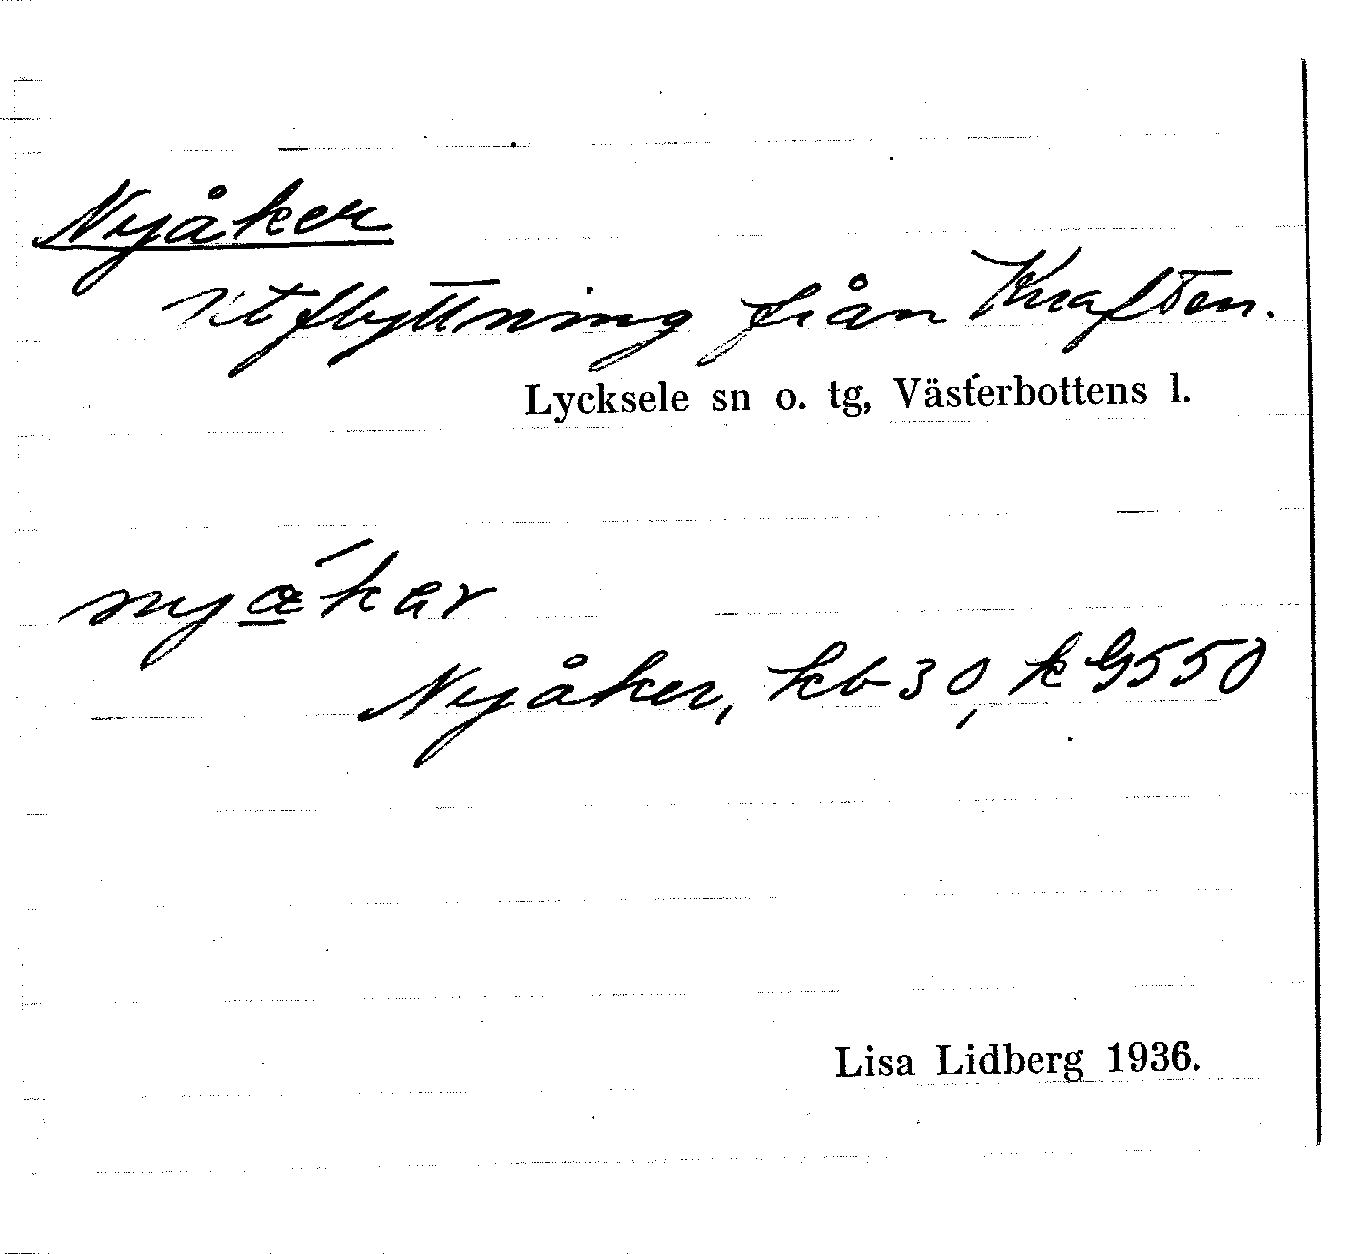 Nyåker
Utflyttning från Knaften.
Lycksele sn o. tg, Västerbottens l.
Nyåker, kb 30, k G550
Lisa Lidberg 1936.